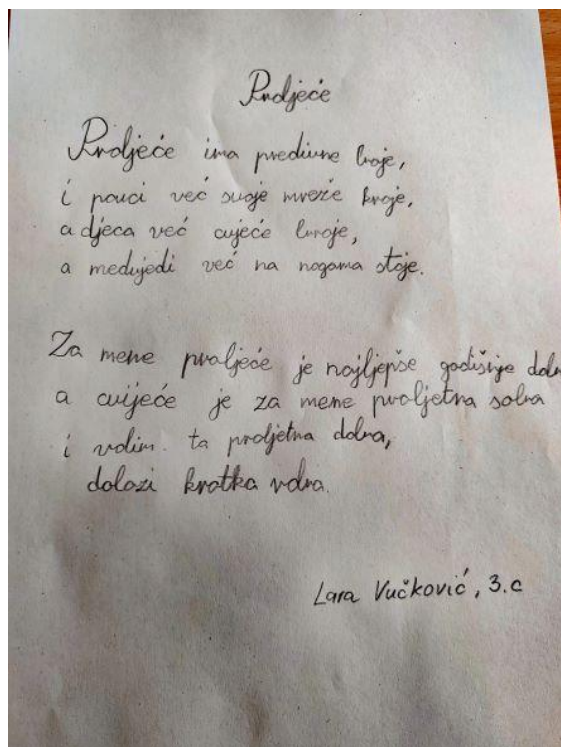 Proljeće
Proljeće ima predivne boje,
i pauci već svoje mreže kroje,
a djeca već cvjeće broje,
a medvjedi već na nogama stoje.
Za mene proljeće je najljepše godišnje doba
a cvijeće je za mene proljetna soba
i volim ta proljetna doba,
dolazi kratka
Lara Vučković, 3.c